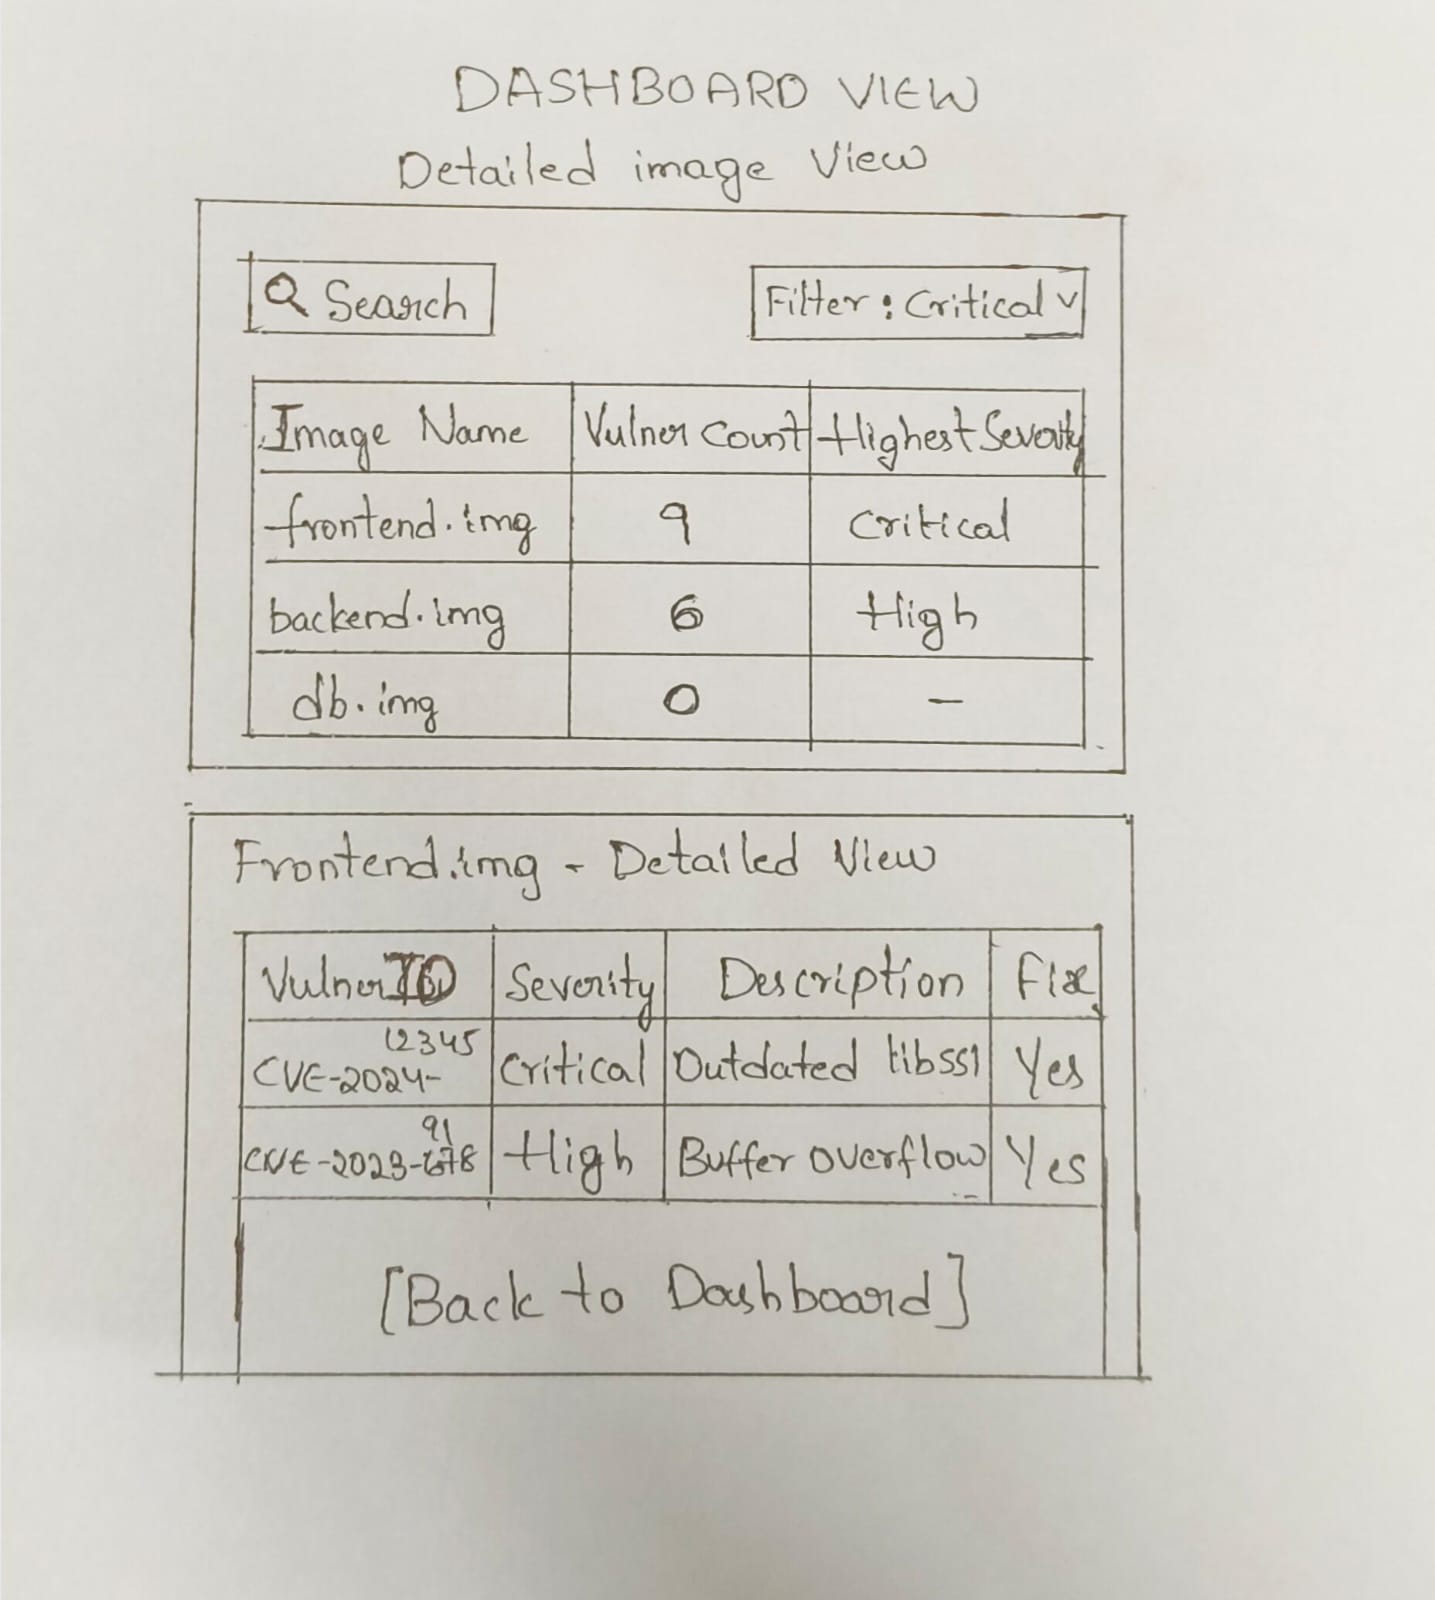 DASHBOARD VIEW
Detailed image View
Search
Filter: Critical v
Image Name Vulner Count Highest Severity
frontend.img 9 Critical
backend.img 6 High
db.img 0 -
Frontend.img - Detailed View
Vulner ID Severity Description Fix
CVE-2024-12345 Critical Outdated libssl Yes
CVE-2023-67891 High Buffer overflow Yes
[Back to Dashboard]